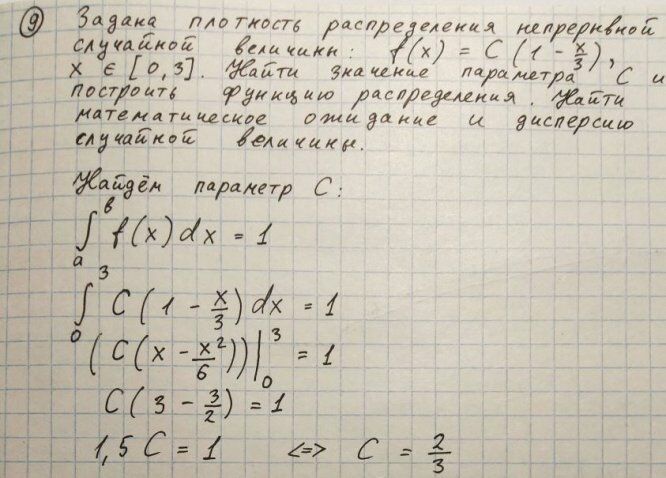 ⑨ Задана плотность распределения непрерывной
случайной величины: f(x) = C(1 - x/3),
x ∈ [0,3]. Найти значение параметра C и
построить функцию распределения. Найти
математическое ожидание и дисперсию
случайной величины.
Найдём параметр C:
∫_a^b f(x)dx = 1
∫_0^3 C(1 - x/3)dx = 1
(C(x - x²/6))|_0^3 = 1
C(3 - 3/2) = 1
1,5 C = 1 <=> C = 2/3